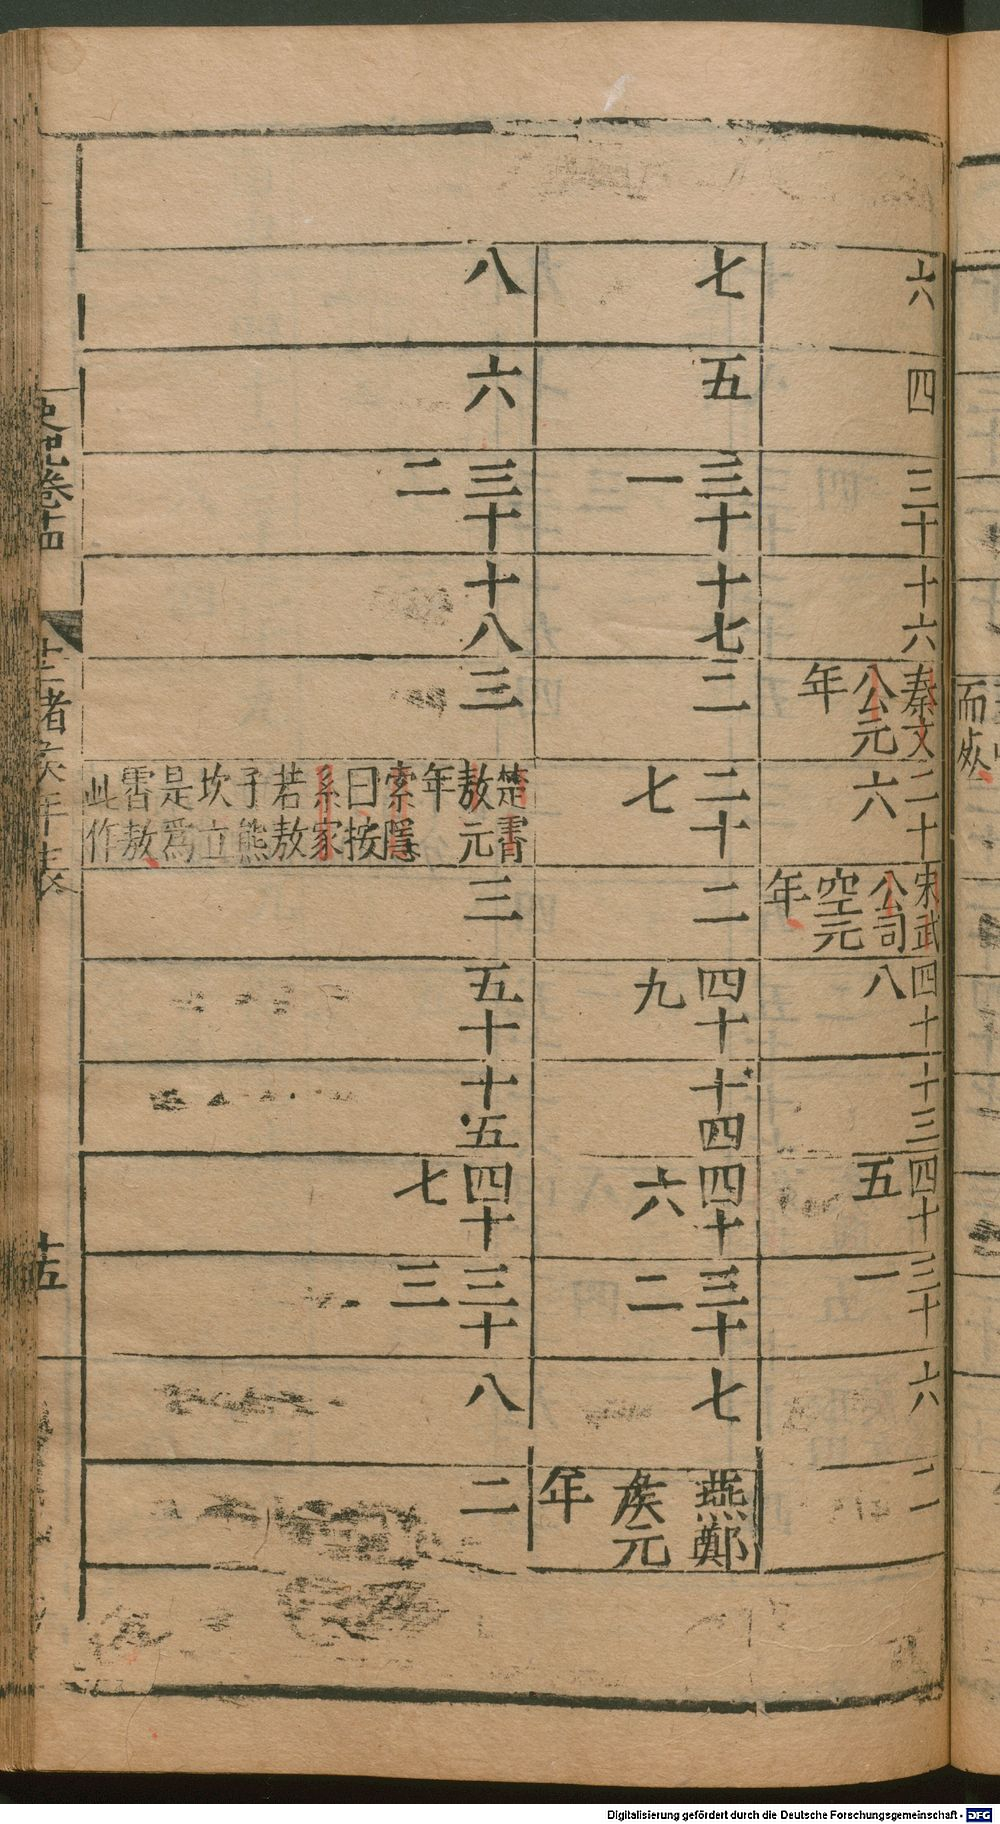 六
四
三十
十六
秦文公元年
二十六
宋武公司空元年
四十八
十三
四十五
三十一
六
二
七
五
三十一
十七
二
二十七
二
四十九
十四
四十六
三十二
七
燕鄭侯元年
八
六
三十二
十八
三
楚霄敖元年索隱曰按系家若敖子熊坎立是爲霄敖此作
三
五十
十五
四十七
三十三
八
二
史記卷十四
十二諸侯年表
十五
而
Digitalisierung gefördert durch die Deutsche Forschungsgemeinschaft - DFG